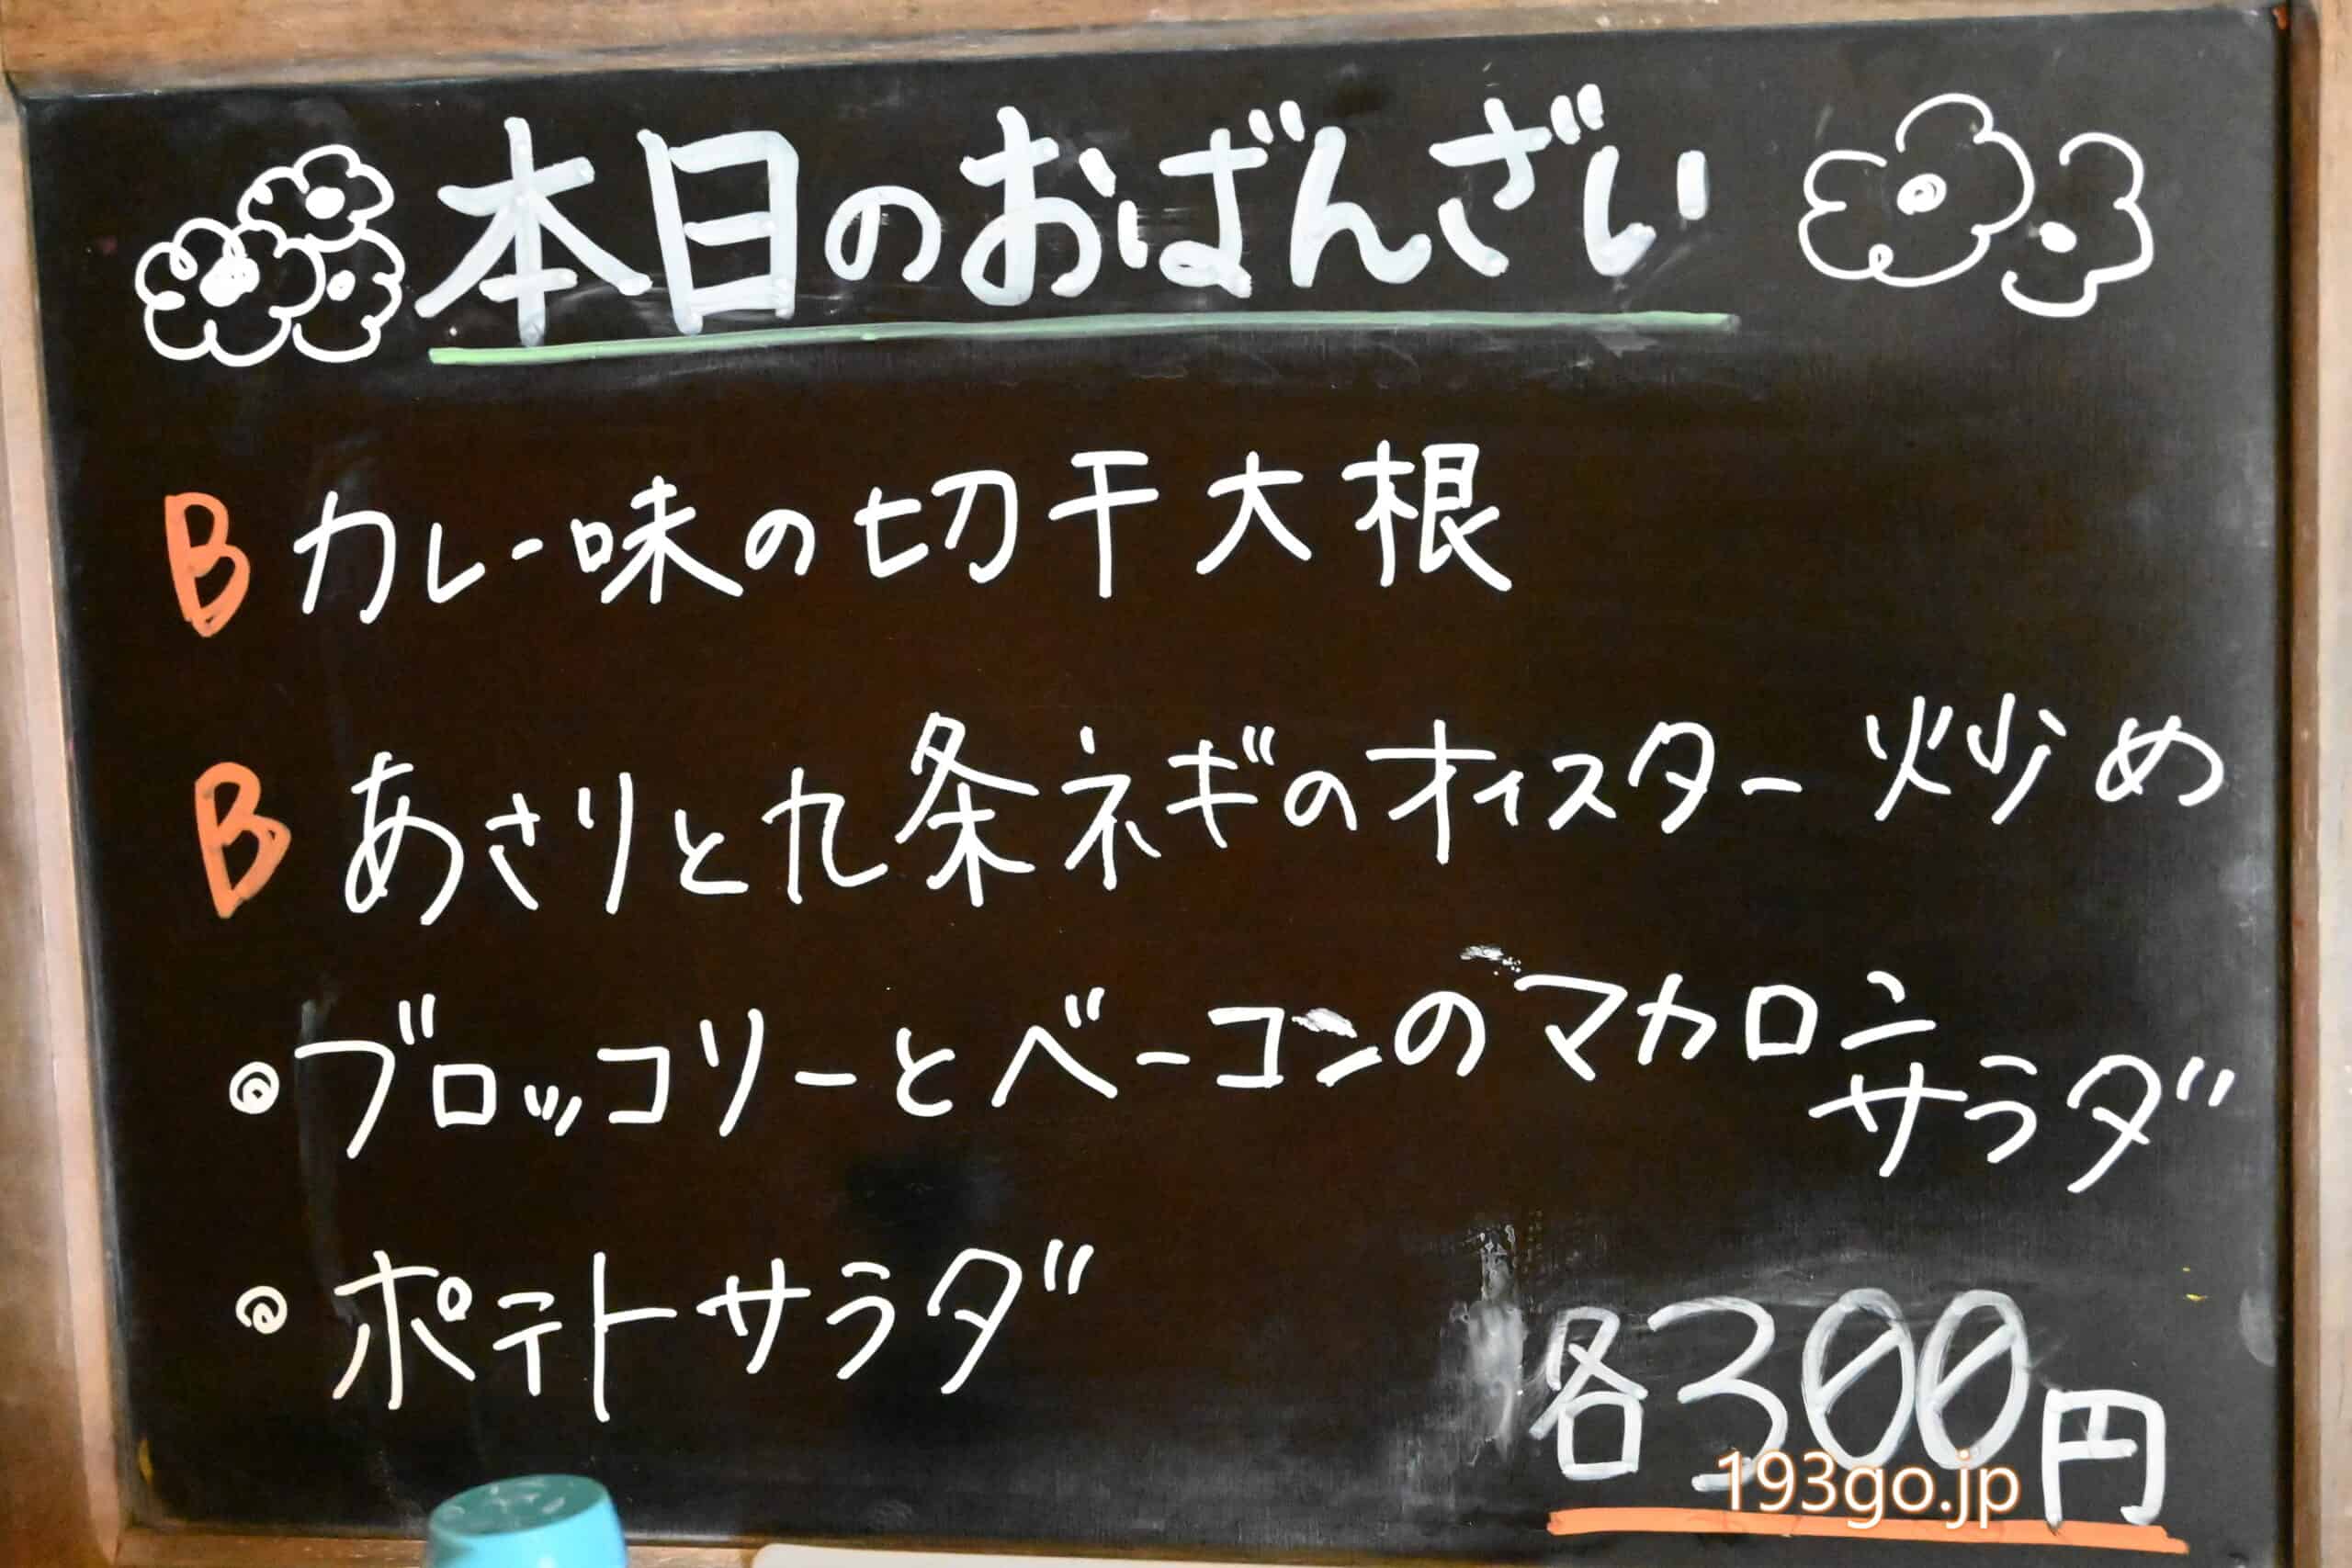 本日のおばんざい
B カレー味の切干大根
B あさりと九条ネギのオイスター炒め
◎ブロッコリーとベーコンのマカロニ
サラダ
◎ポテトサラダ
各300円
193go.jp